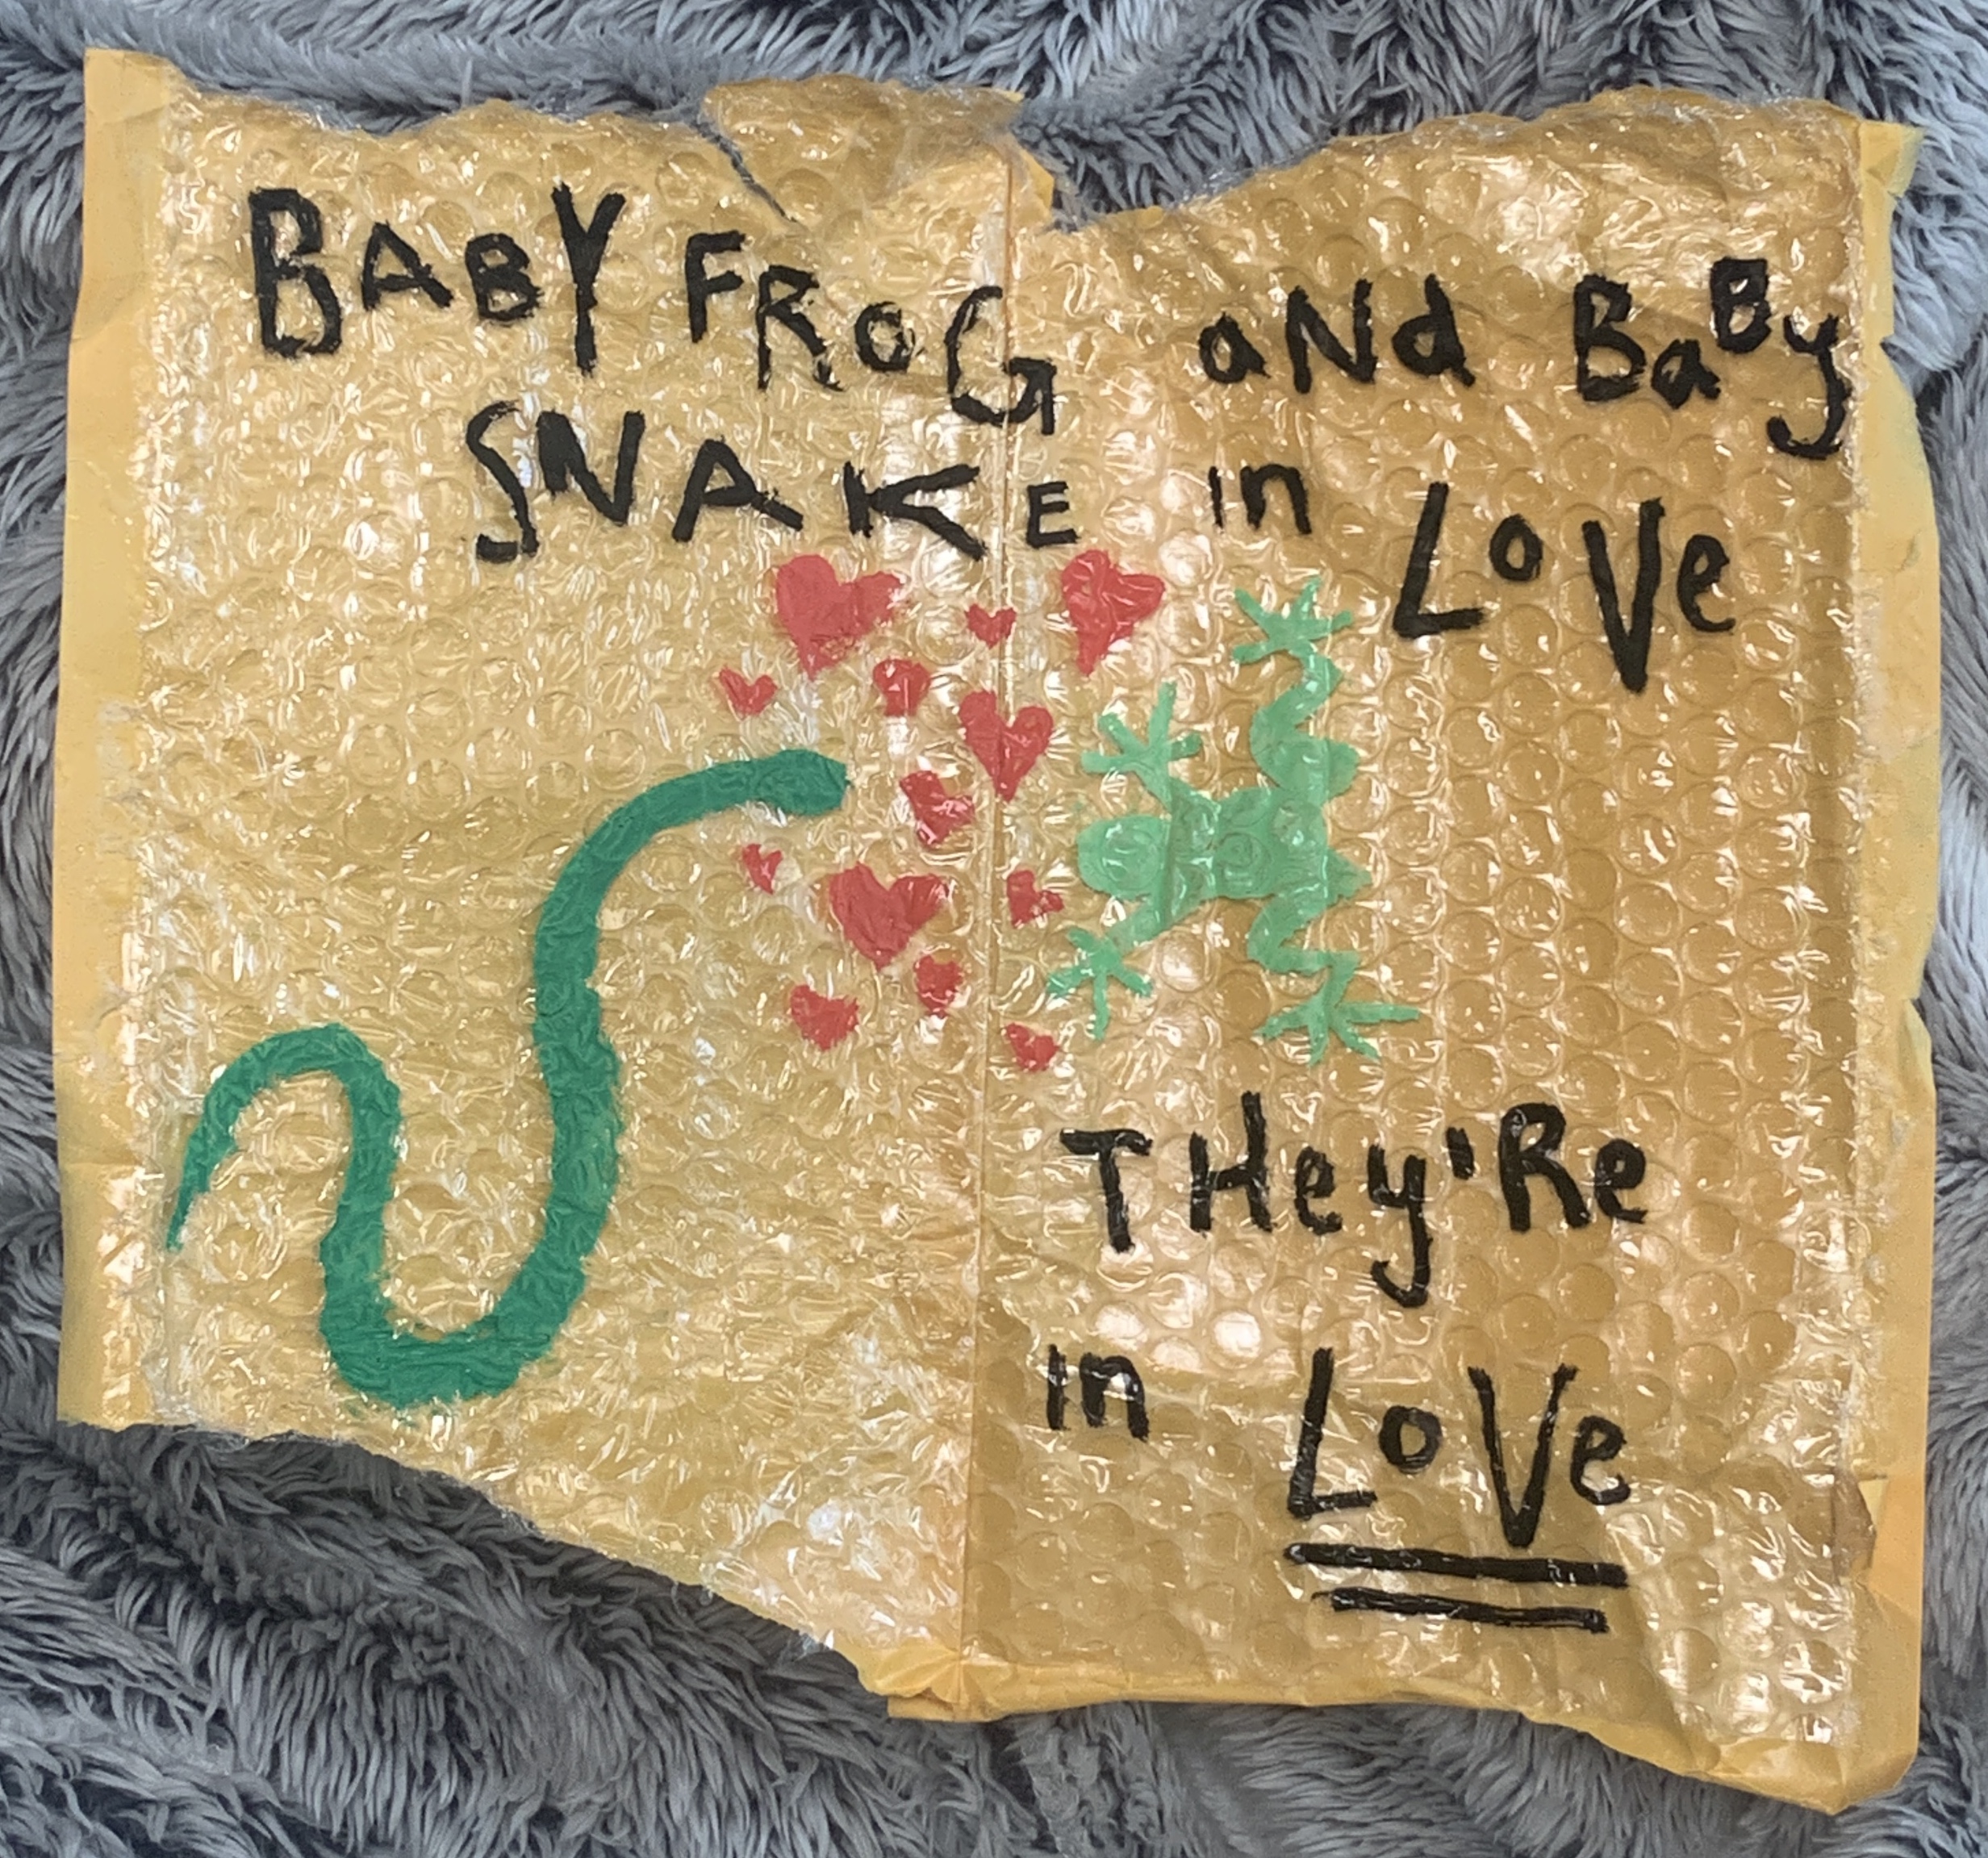 BABY FRoG aNd BaBy
SNAKE in LoVe
THey'Re
in LoVe